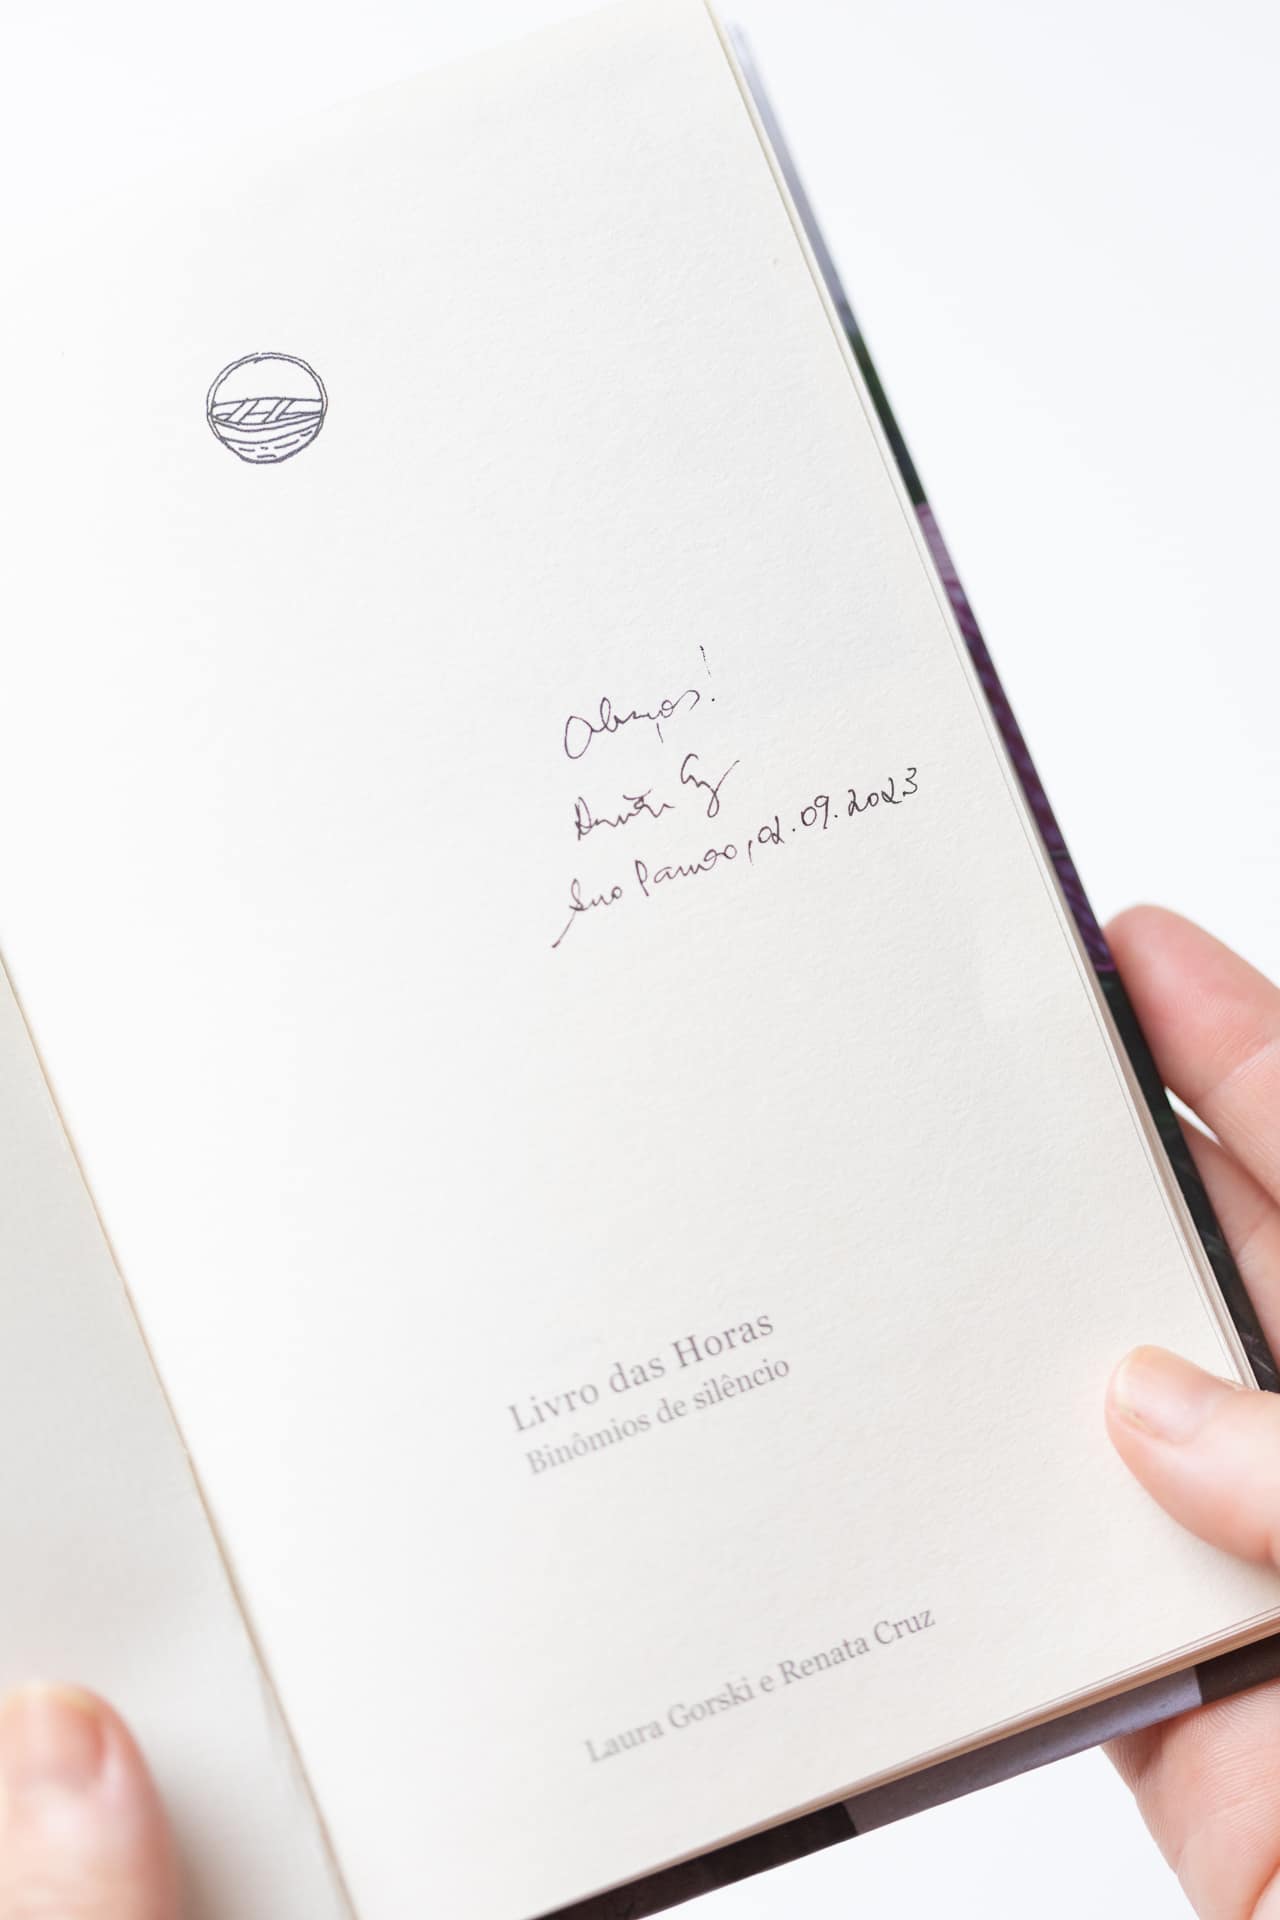 Abraços!
São Paulo, 02.09.2023
Livro das Horas
Binômios de silêncio
Laura Gorski e Renata Cruz